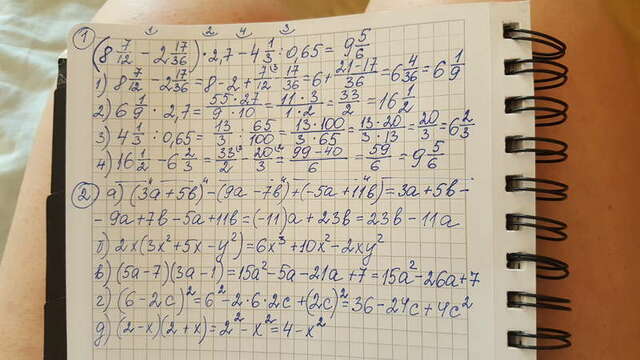 1 2 4 3
① (8 7/12 - 2 17/36) · 2,7 - 4 1/3 : 0,65 = 9 5/6
1) 8 7/12 - 2 17/36 = 8 - 2 + 7/12 ^3 - 17/36 = 6 + (21-17)/36 = 6 4/36 = 6 1/9
2) 6 1/9 · 2,7 = (55·27)/(9·10) = (11·3)/(1·2) = 33/2 = 16 1/2
3) 4 1/3 : 0,65 = 13/3 : 65/100 = (13·100)/(3·65) = (13·20)/(3·13) = 20/3 = 6 2/3
4) 16 1/2 - 6 2/3 = 33/2 ^3 - 20/3 ^2 = (99-40)/6 = 59/6 = 9 5/6
② а) (3а + 5в) - (9а - 7в) + (-5а + 11в) = 3а + 5в -
- 9а + 7в - 5а + 11в = (-11)а + 23в = 23в - 11а
б) 2x(3x² + 5x - y²) = 6x³ + 10x² - 2xy²
в) (5а - 7)(3а - 1) = 15а² - 5а - 21а + 7 = 15а² - 26а + 7
г) (6 - 2с)² = 6² - 2·6·2с + (2с)² = 36 - 24с + 4с²
д) (2 - x)(2 + x) = 2² - x² = 4 - x²